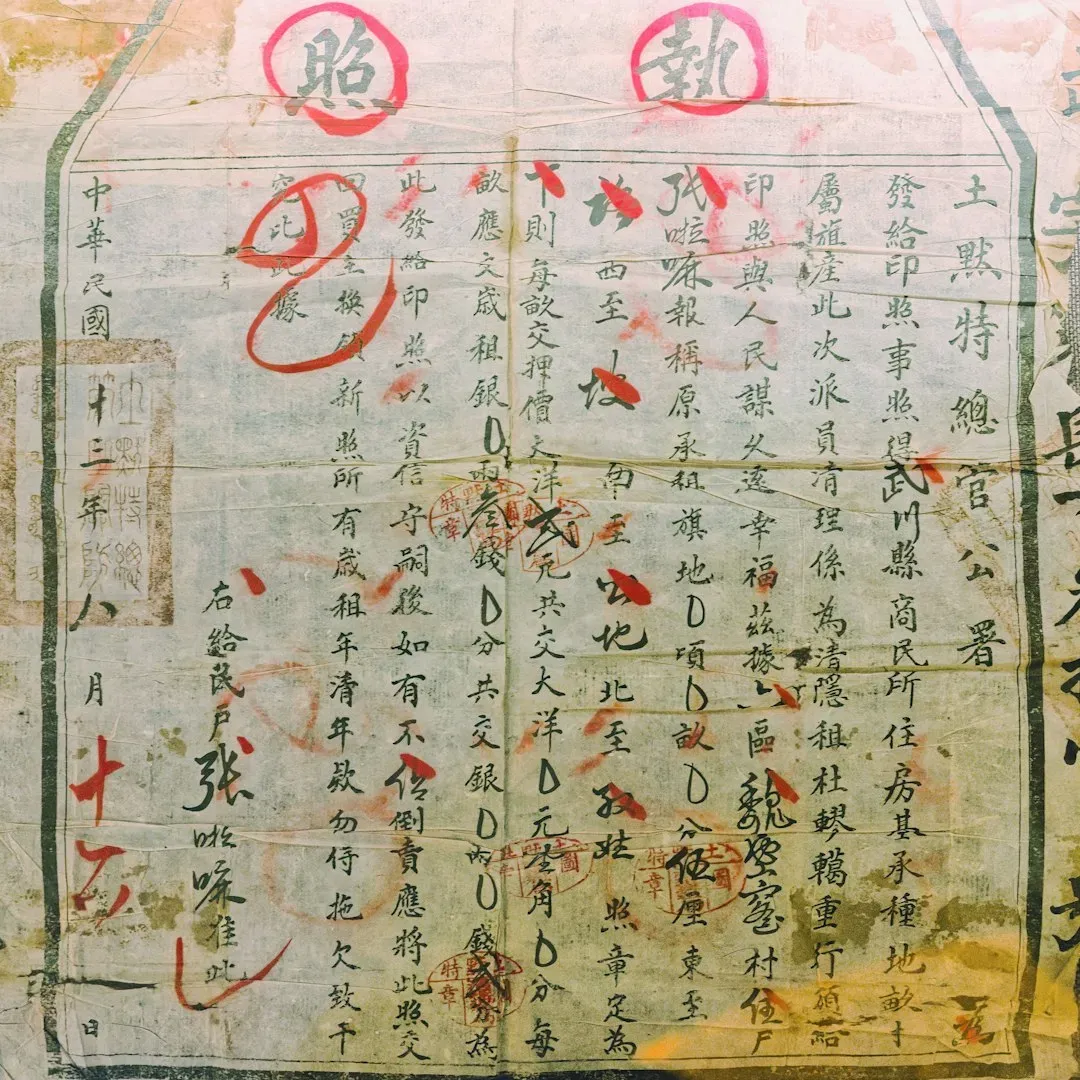 執照
土默特總官公署為
發給印照事照得武川縣商民所住房基承種地畝
屬旗產此次派員清理係為清隱租杜轇轕重行頒給
印照與人民謀久遠幸福茲據六區魏窰村住戶
張啦嘛報稱原承租旗地0頃0畝0分伍厘東至
路西至坡南至公地北至孙姓照章定為
下則每畝交押價大洋弍元共交大洋0元壹角0分每
畝應交歲租銀0兩叁錢0分共交銀0兩0錢弍分為
此發給印照以資信守嗣後如有不倒賣應將此照交
回買主換領新照所有歲租年清年款勿得拖欠致干
究此據
右給民戶張啦嘛准此
中華民國十三年八月十六日